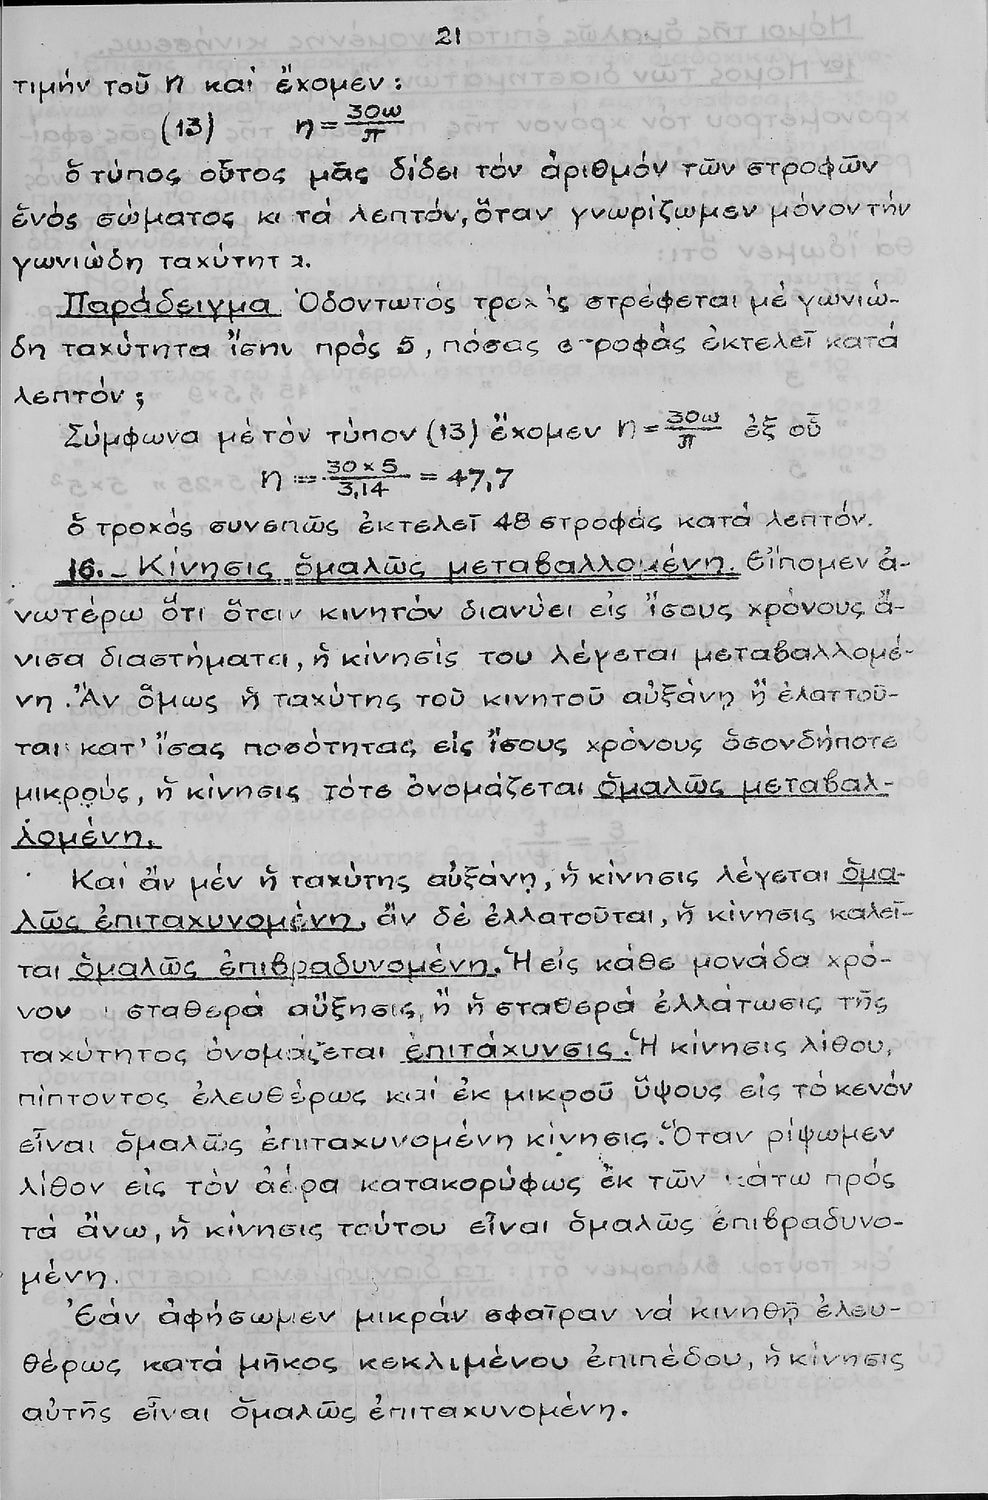 21
τιμήν τοῦ η καί ἔχομεν:
(13) η = 30ω/π
ὁ τύπος οὗτος μᾶς δίδει τόν ἀριθμόν τῶν στροφῶν
ἑνός σώματος κατά λεπτόν, ὅταν γνωρίζωμεν μόνον τήν
γωνιώδη ταχύτητα.
Παράδειγμα Ὀδοντωτός τροχός στρέφεται μέ γωνιώ-
δη ταχύτητα ἴσην πρός 5, πόσας στροφάς ἐκτελεῖ κατά
λεπτόν;
Σύμφωνα μέ τόν τύπον (13) ἔχομεν η = 30ω/π ἐξ οὗ
η = 30 x 5/3,14 = 47,7
ὁ τροχός συνεπῶς ἐκτελεῖ 48 στροφάς κατά λεπτόν.
16.- Κίνησις ὁμαλῶς μεταβαλλομένη. Εἴπομεν ἀ-
νωτέρω ὅτι ὅταν κινητόν διανύει εἰς ἴσους χρόνους ἄ-
νισα διαστήματα, ἡ κίνησίς του λέγεται μεταβαλλομέ-
νη. Ἄν ὅμως ἡ ταχύτης τοῦ κινητοῦ αὐξάνη ἤ ἐλαττοῦ-
ται κατ' ἴσας ποσότητας εἰς ἴσους χρόνους ὁσονδήποτε
μικρούς, ἡ κίνησις τότε ὀνομάζεται ὁμαλῶς μεταβαλ-
λομένη.
Καί ἄν μέν ἡ ταχύτης αὐξάνη, ἡ κίνησις λέγεται ὁμα-
λῶς ἐπιταχυνομένη, ἄν δέ ἐλλατοῦται, ἡ κίνησις καλεῖ-
ται ὁμαλῶς ἐπιβραδυνομένη. Ἡ εἰς κάθε μονάδα χρό-
νου σταθερά αὔξησις, ἤ ἡ σταθερά ἐλλάτωσις τῆς
ταχύτητος ὀνομάζεται ἐπιτάχυνσις. Ἡ κίνησις λίθου,
πίπτοντος ἐλευθέρως καί ἐκ μικροῦ ὕψους εἰς τό κενόν
εἶναι ὁμαλῶς ἐπιταχυνομένη κίνησις. Ὅταν ρίψωμεν
λίθον εἰς τόν ἀέρα κατακορύφως ἐκ τῶν κάτω πρός
τά ἄνω, ἡ κίνησις τούτου εἶναι ὁμαλῶς ἐπιβραδυνο-
μένη.
Ἐάν ἀφήσωμεν μικράν σφαῖραν νά κινηθῇ ἐλευ-
θέρως κατά μῆκος κεκλιμένου ἐπιπέδου, ἡ κίνησις
αὐτῆς εἶναι ὁμαλῶς ἐπιταχυνομένη.